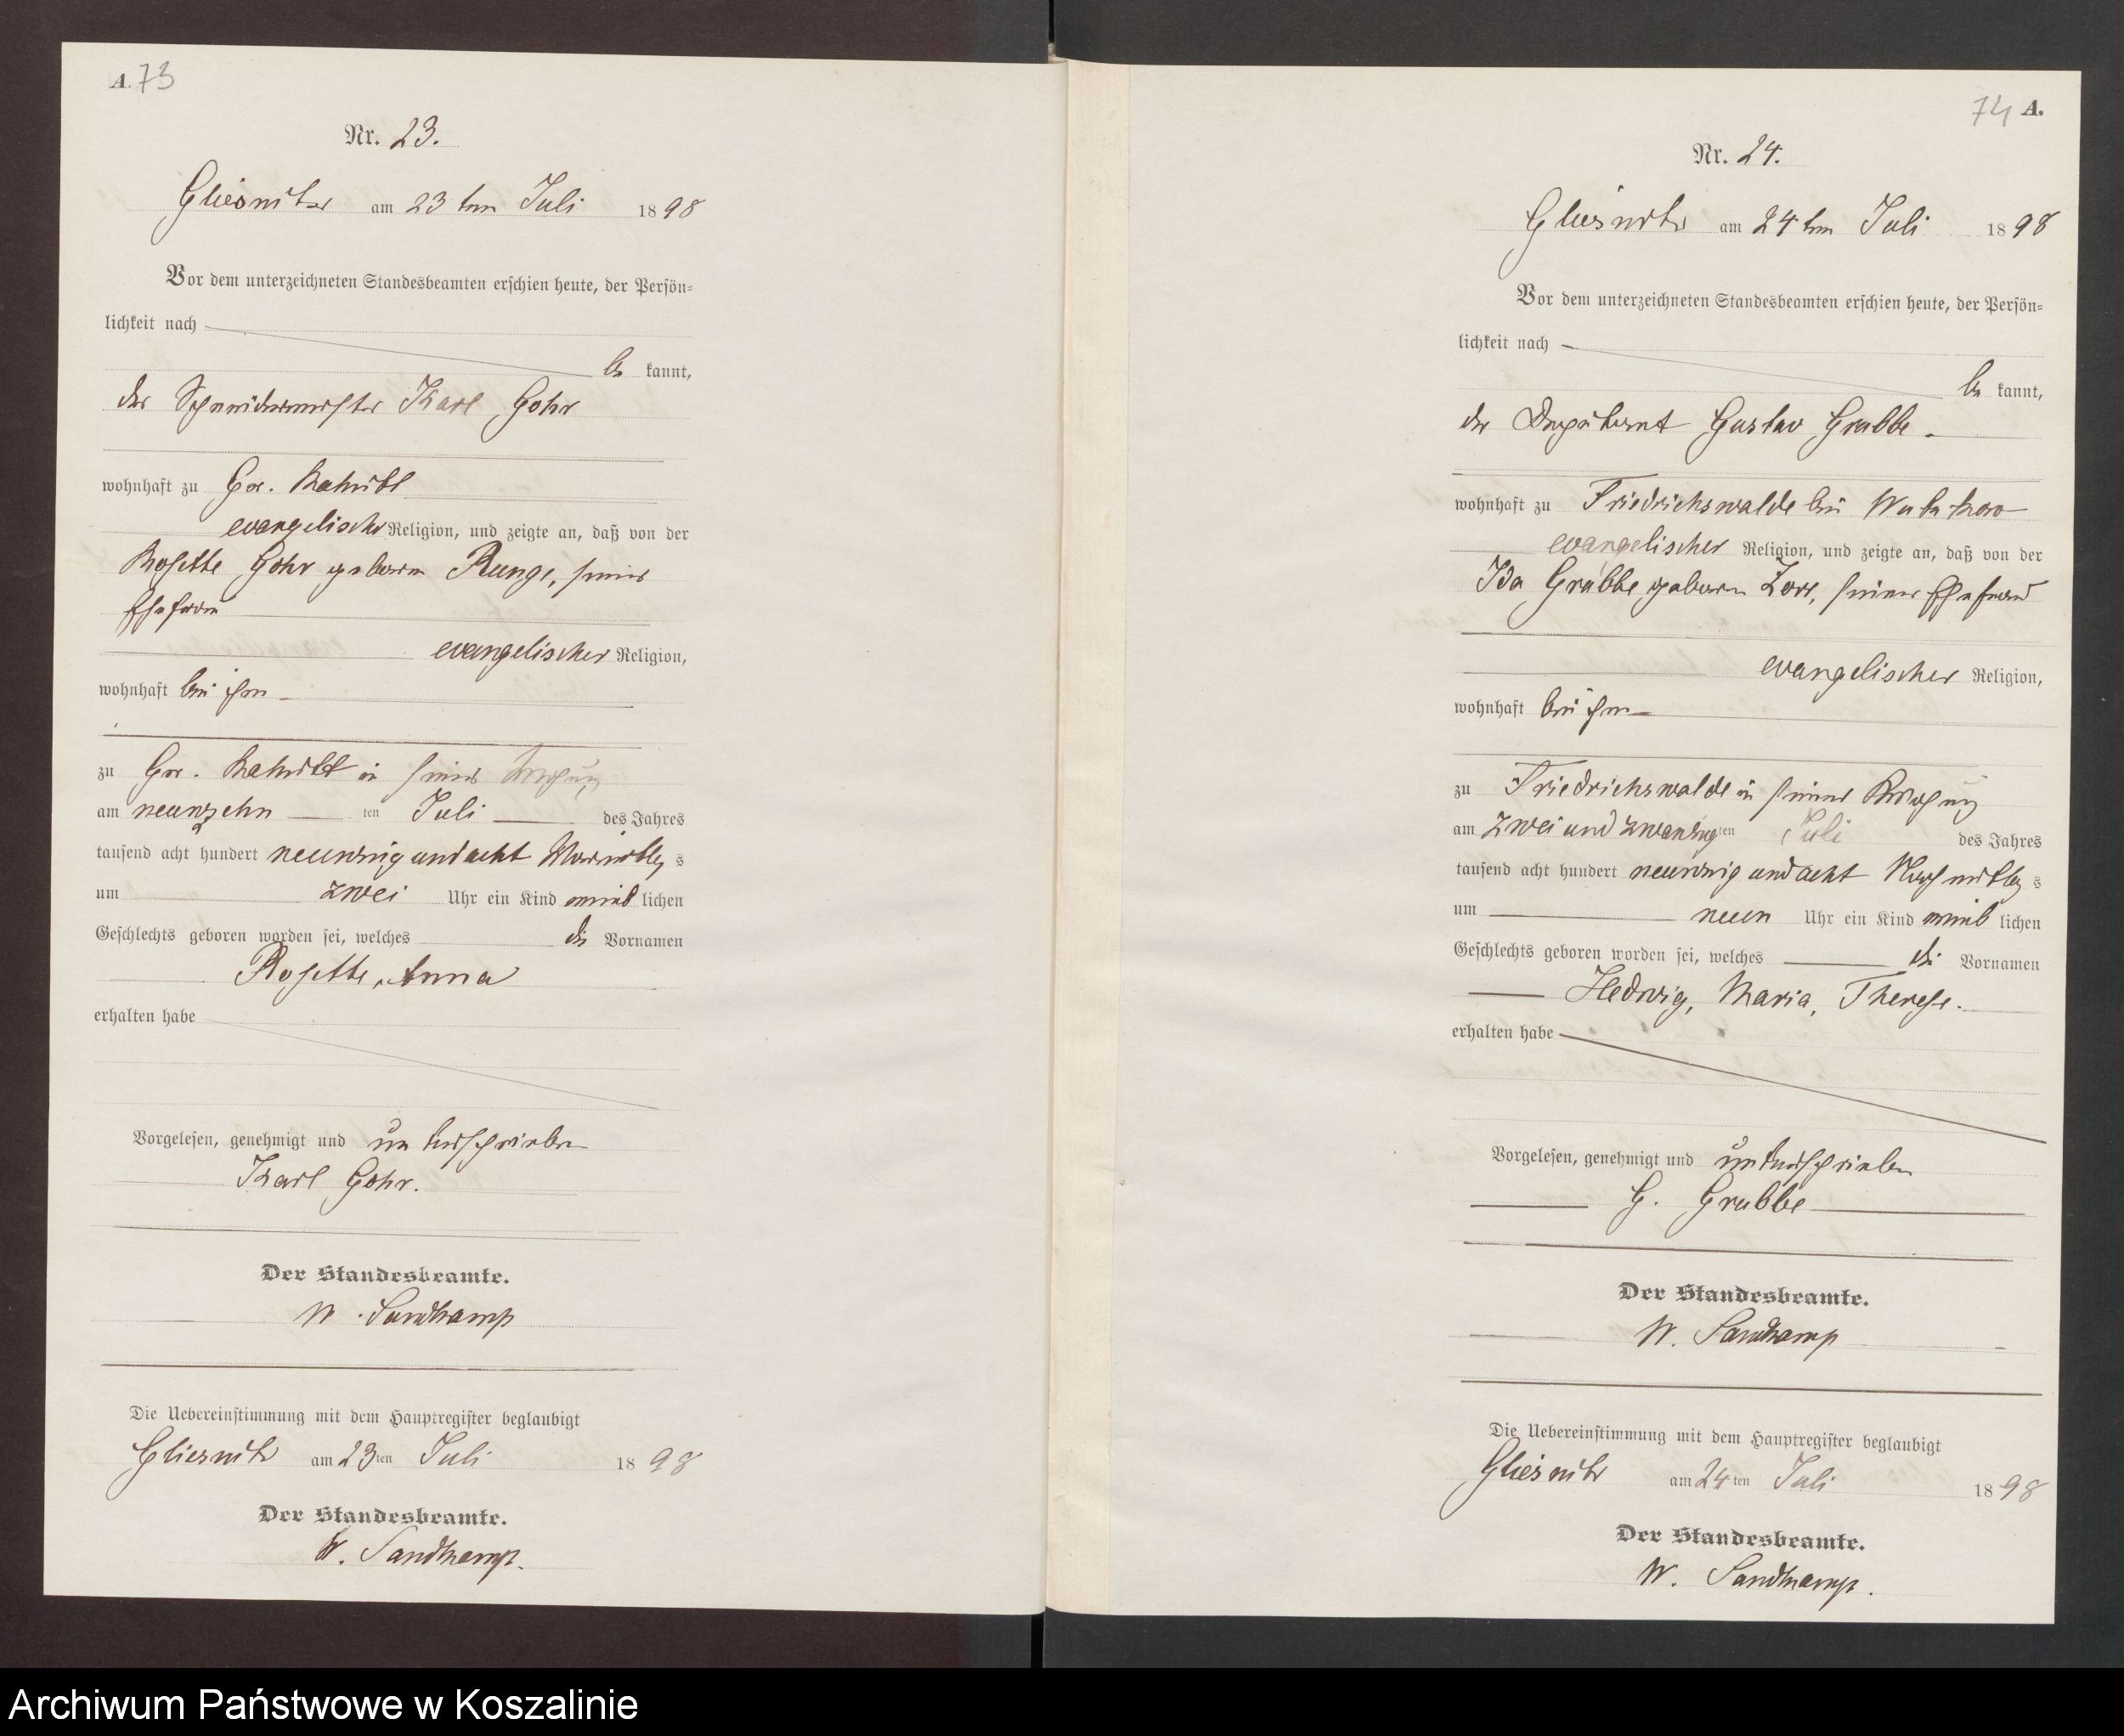 A. 73
Nr. 23.
Gliesnitz am 23 ten Juli 1898
Vor dem unterzeichneten Standesbeamten erschien heute, der Persön=
lichkeit nach
be kannt,
der Schneidermeister Karl Gohr
wohnhaft zu Gr.
evangelischer Religion, und zeigte an, daß von der
Rosette Gohr geboren Runge, seiner
Ehefrau
evangelischer Religion,
wohnhaft bei ihm
zu Gr. in seiner Wohnung
am neunzehn ten Juli des Jahres
tausend acht hundert neunzig und acht Vormittag s
um zwei Uhr ein Kind weib lichen
Geschlechts geboren worden sei, welches die Vornamen
Rosette, Anna
erhalten habe
Vorgelesen, genehmigt und unterschrieben
Karl Gohr.
Der Standesbeamte.
W. Sandkamp
Die Uebereinstimmung mit dem Hauptregister beglaubigt
Gliesnitz am 23ten Juli 1898
Der Standesbeamte.
W. Sandkamp.
74 A.
Nr. 24.
Gliesnitz am 24 ten Juli 1898
Vor dem unterzeichneten Standesbeamten erschien heute, der Persön=
lichkeit nach
be kannt,
der Deputant Gustav Grabbe
wohnhaft zu Friedrichswalde bei
evangelischer Religion, und zeigte an, daß von der
Ida Grabbe geboren seiner Ehefrau
evangelischer Religion,
wohnhaft bei ihm
zu Friedrichswalde in seiner Wohnung
am zwei und zwanzig ten Juli des Jahres
tausend acht hundert neunzig und acht Nachmittag s
um neun Uhr ein Kind weib lichen
Geschlechts geboren worden sei, welches die Vornamen
Hedwig, Maria, Therese.
erhalten habe
Vorgelesen, genehmigt und unterschrieben
G. Grabbe
Der Standesbeamte.
W. Sandkamp
Die Uebereinstimmung mit dem Hauptregister beglaubigt
Gliesnitz am 24ten Juli 1898
Der Standesbeamte.
W. Sandkamp.
Archiwum Państwowe w Koszalinie